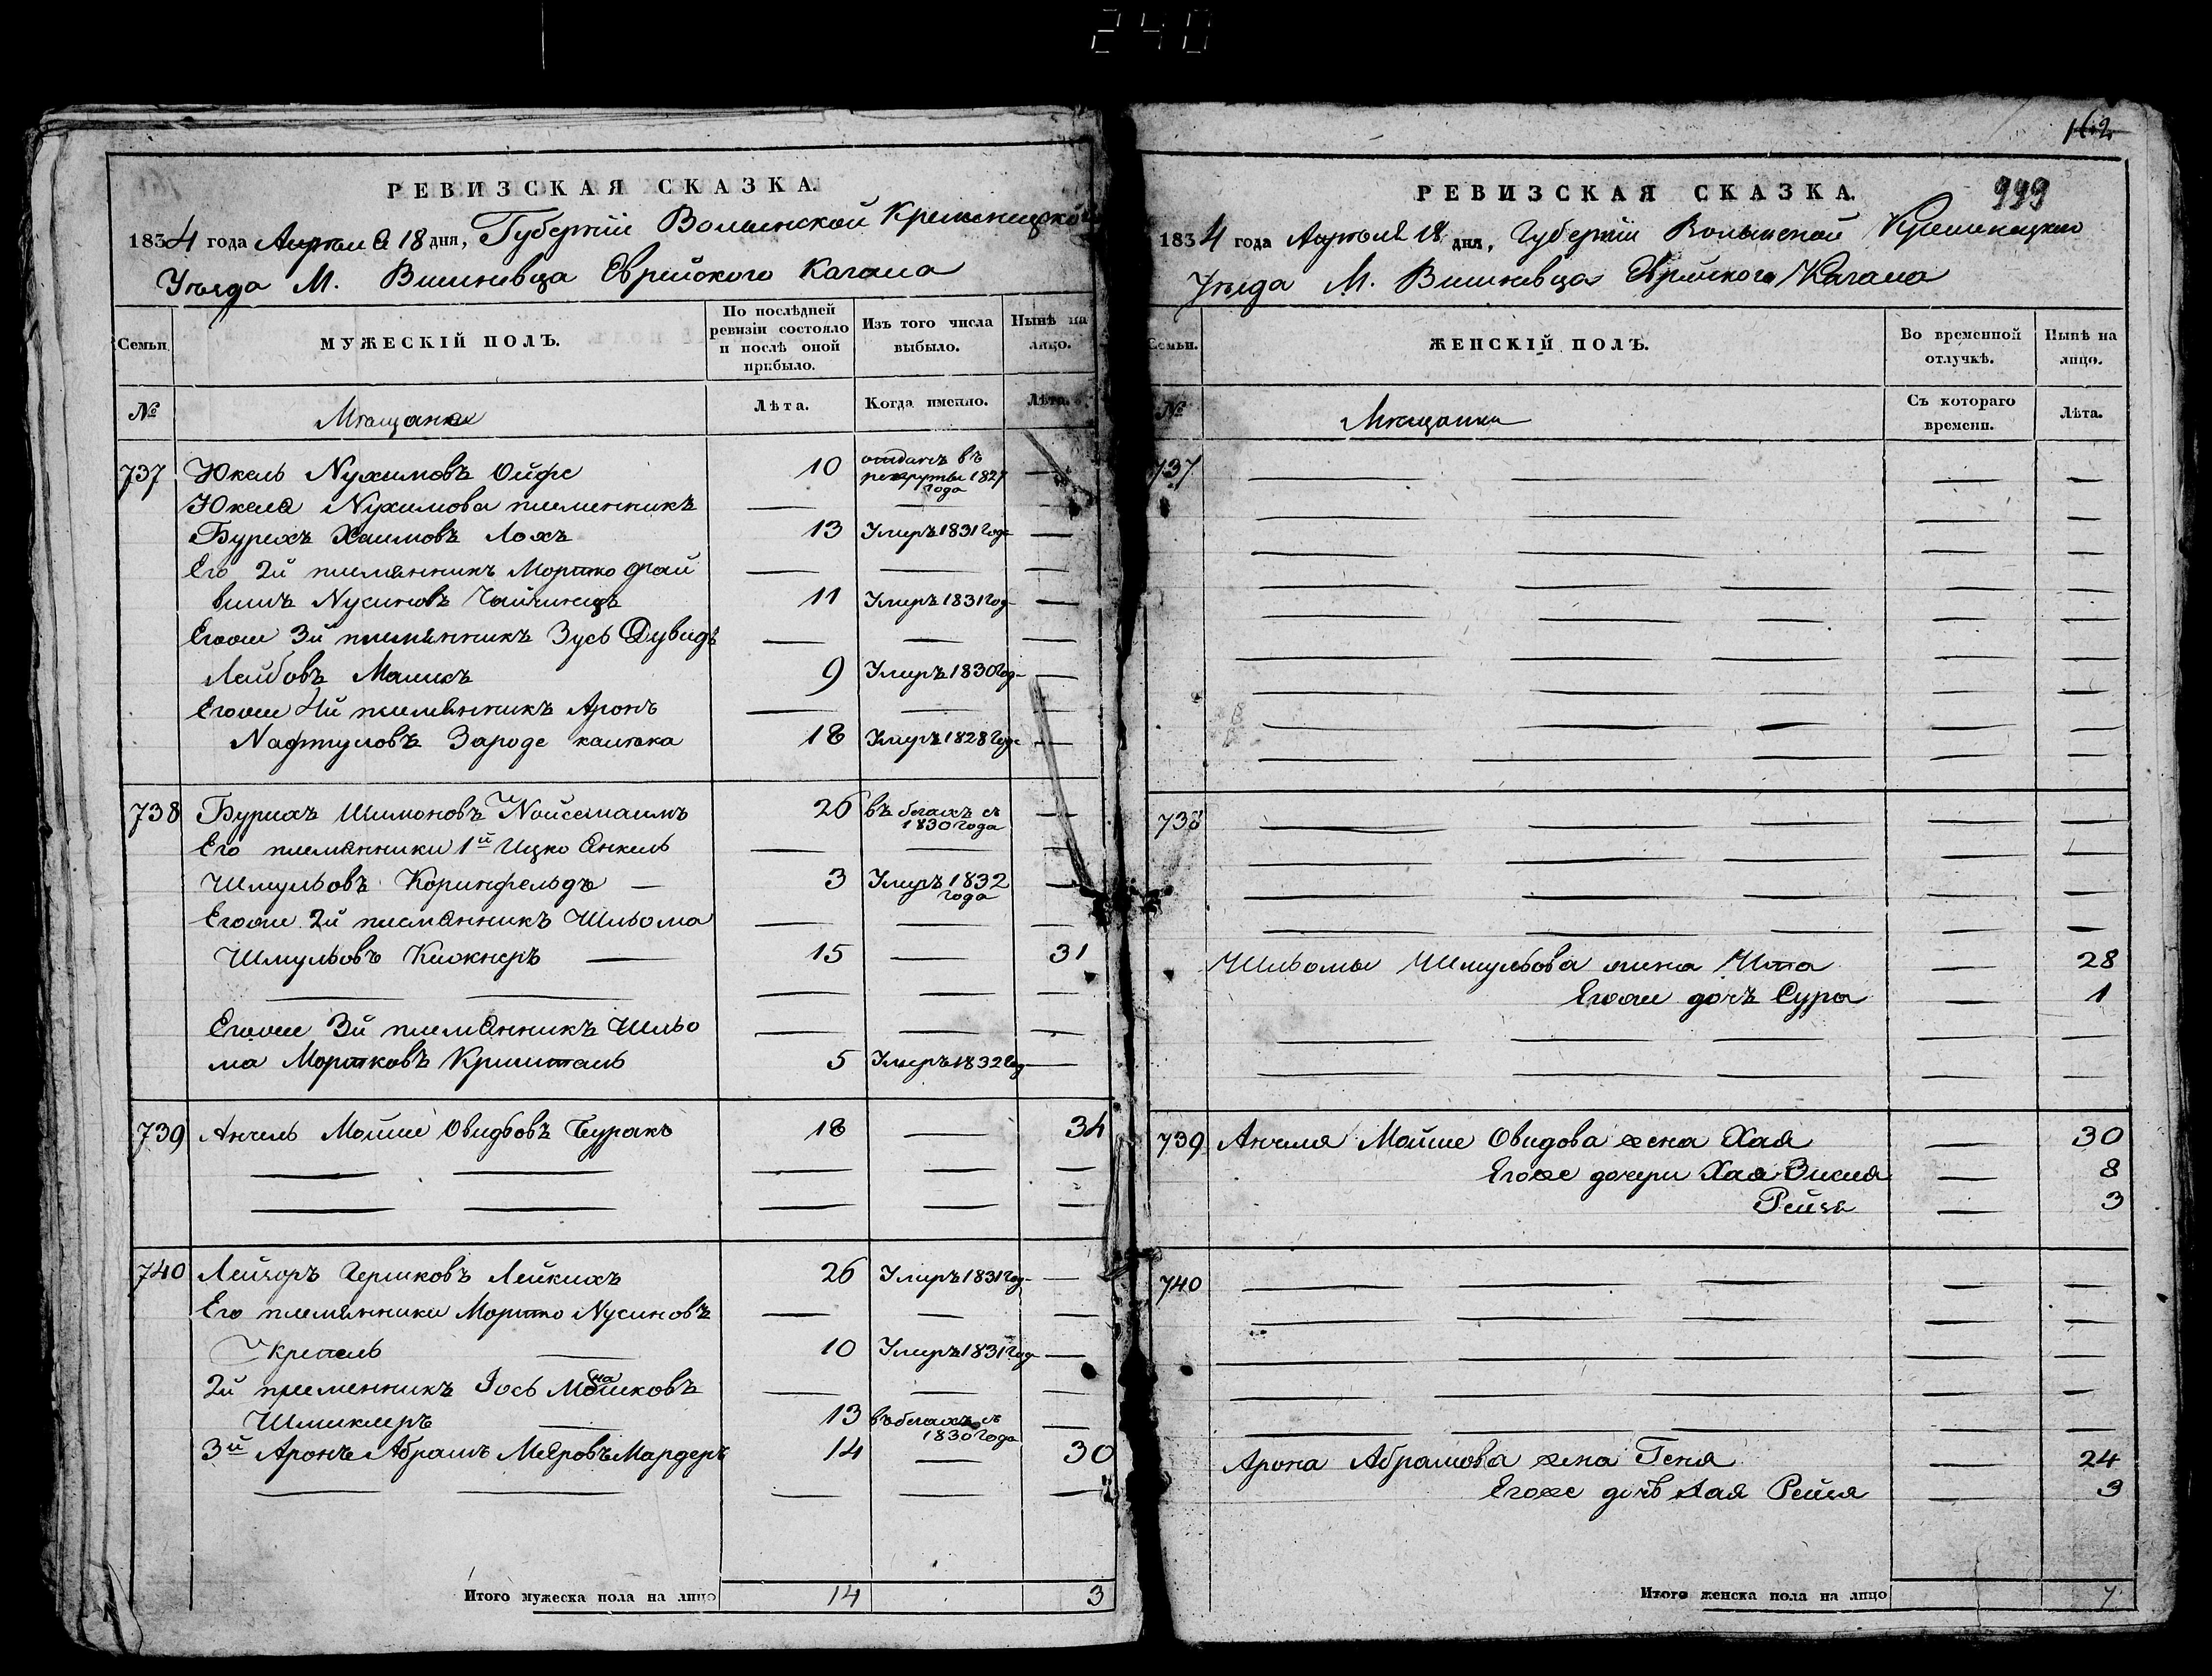 240
РЕВИЗСКАЯ СКАЗКА.
1834 года Апреля 18 дня, Губерніи Волынской Кременецкого
Уѣзда М. Вишневца Еврейского Кагала
Семьи.
МУЖЕСКІЙ ПОЛЪ.
По послѣдней ревизіи состояло и послѣ оной прибыло.
Изъ того числа выбыло.
Нынѣ на лицо.
№
Мещане
Лѣта.
Когда именно.
Лѣта.
737 Юкель Нухимовъ Ойфе 10 отданъ въ рекруты 1827 года —
Юкеля Нухимова племенникъ — —
Бурихъ Хаимовъ Лохъ 13 Умеръ 1831 года —
Его 2й племянникъ Мортко Фай — —
вишъ Нусиновъ 11 Умеръ 1831 год —
Егоже 3й племянникъ Зусь Дувидъ — — —
Лейбовъ Маликъ 9 Умеръ 1830 год —
Егоже 4й племянникъ Аронъ — — —
Нафтуловъ Зароде калека 18 Умеръ 1828 года —
738 Бурихъ Шимоновъ Нойсеманъ 26 въ бегахъ съ 1830 года —
Его племянники 1й Ицко Янкель — — —
Шмульовъ Коринфельдъ — 3 Умеръ 1832 года —
Егоже 2й племянникъ Шльома — — —
Шмульовъ Клокнеръ — 15 — 31
— — — — —
Егоже 3й племянникъ Шльо — — —
ма Мортковъ Кришталь 5 Умеръ 1832 год —
739 Анчель Мойше Овидьовъ Буракъ 18 — 34
— — — — —
— — — — —
740 Лейзоръ Гершковъ Лейкихъ 26 Умеръ 1831 год —
Его племянники Мортко Нусиновъ — — —
Укрепель — 10 Умеръ 1831 год —
2й племенникъ Іось Мошковъ — — —
Шмуклеръ — 13 въ бегахъ съ 1830 года —
3й Аронъ Абрамъ Меяровъ Мардеръ 14 — 30
— — — — —
Итого мужеска пола на лицо 14 3
162
999
РЕВИЗСКАЯ СКАЗКА.
1834 года Апреля 18 дня, Губерніи Волынской Кременецкого
Уѣзда М. Вишневца Еврейского Кагала
Семьи.
ЖЕНСКІЙ ПОЛЪ.
Во временной отлучкѣ.
Нынѣ на лицо.
№
Мещанки
Съ котораго времени.
Лѣта.
737 — — — —
738 — — — —
Шльомы Шмульова жена Ита — 28
Егоже дочъ Сура — 1
739 Анчеля Мойше Овидова жена Хая — 30
Егоже дочери Хая Зисля — 8
Рейзя — 3
740 — — — — —
Арона Абрамова жена Геня — 24
Егоже дочъ Хая Рейзя — 3
Итого женска пола на лицо 7